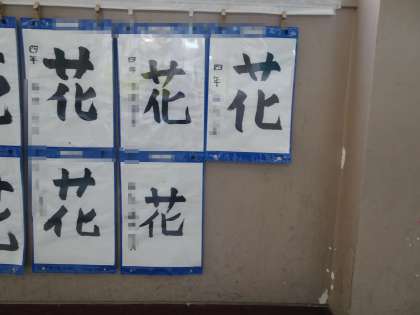 花
四年
花
四年
花
四年
花
花
花
花